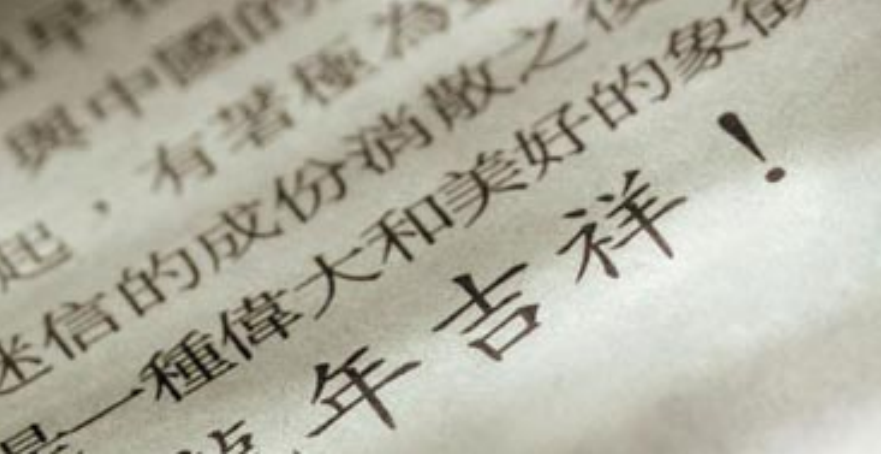 與中國的
起，有著極為
迷信的成份消散之後
是一種偉大和美好的象徵
龍年吉祥！